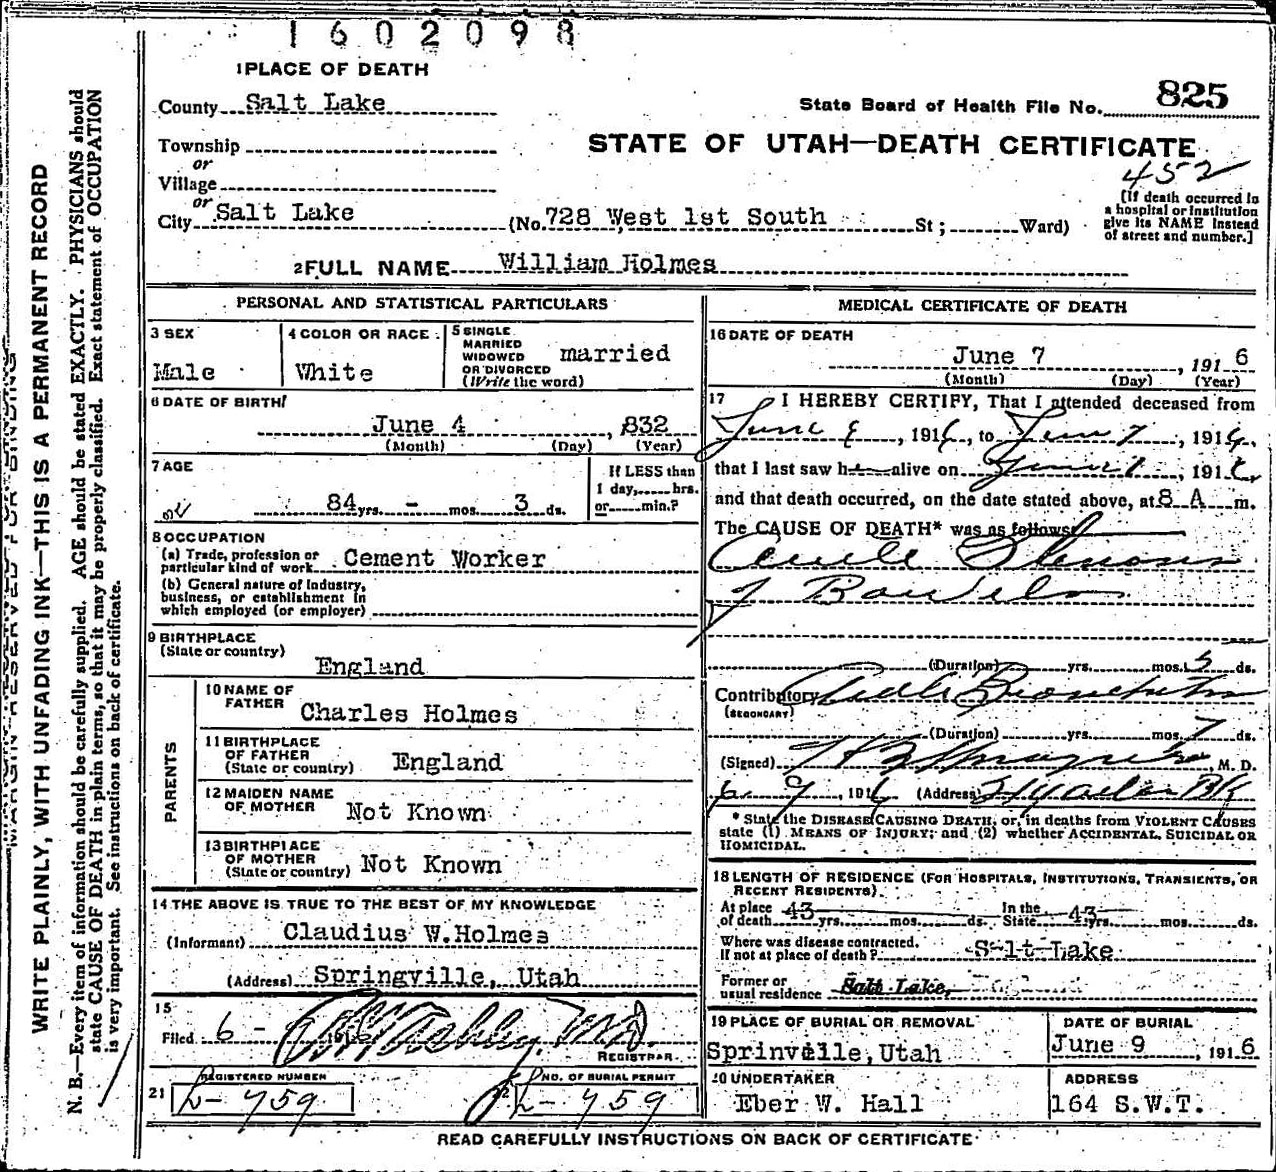 1602098
1 PLACE OF DEATH
County Salt Lake
State Board of Health File No. 825
Township
or
Village
or
City Salt Lake (No. 728 West 1st South St; Ward)
STATE OF UTAH—DEATH CERTIFICATE
452
[If death occurred in
a hospital or institution
give its NAME instead
of street and number.]
2 FULL NAME William Holmes
PERSONAL AND STATISTICAL PARTICULARS
3 SEX
Male
4 COLOR OR RACE
White
5 SINGLE
MARRIED
WIDOWED
OR DIVORCED
(Write the word)
married
6 DATE OF BIRTH
June 4, 832
(Month) (Day) (Year)
7 AGE
84 yrs. - mos. 3 ds.
If LESS than
1 day, hrs.
or min.?
8 OCCUPATION
(a) Trade, profession or
particular kind of work Cement Worker
(b) General nature of Industry,
business, or establishment in
which employed (or employer)
9 BIRTHPLACE
(State or country)
England
PARENTS
10 NAME OF
FATHER
Charles Holmes
11 BIRTHPLACE
OF FATHER
(State or country)
England
12 MAIDEN NAME
OF MOTHER
Not Known
13 BIRTHPLACE
OF MOTHER
(State or country)
Not Known
14 THE ABOVE IS TRUE TO THE BEST OF MY KNOWLEDGE
(Informant) Claudius W. Holmes
(Address) Springville, Utah
15
Filed 6 -
REGISTRAR
REGISTERED NUMBER
21 L-459
NO. OF BURIAL PERMIT
22 L-459
MEDICAL CERTIFICATE OF DEATH
16 DATE OF DEATH
June 7, 1916
(Month) (Day) (Year)
17 I HEREBY CERTIFY, That I attended deceased from
June, 1916, to June 7, 1916,
that I last saw h alive on June, 191
and that death occurred, on the date stated above, at 8 A m.
The CAUSE OF DEATH* was as follows:
of Bowels
(Duration) yrs. mos. 5 ds.
Contributory Acute Bronchitis
(SECONDARY)
(Duration) yrs. mos. 7 ds.
(Signed) M. D.
6 9, 1916 (Address)
* State the DISEASE CAUSING DEATH, or, in deaths from VIOLENT CAUSES
state (1) MEANS OF INJURY; and (2) whether ACCIDENTAL, SUICIDAL OR
HOMICIDAL.
18 LENGTH OF RESIDENCE (FOR HOSPITALS, INSTITUTIONS, TRANSIENTS, OR
RECENT RESIDENTS).
At place
of death 43 yrs. mos. ds.
In the
State 43 yrs. mos. ds.
Where was disease contracted.
If not at place of death? S-lt-Lake
Former or
usual residence Salt Lake,
19 PLACE OF BURIAL OR REMOVAL
Sprinville, Utah
DATE OF BURIAL
June 9, 1916
20 UNDERTAKER
Eber W. Hall
ADDRESS
164 S.W.T.
READ CAREFULLY INSTRUCTIONS ON BACK OF CERTIFICATE
MARGIN RESERVED FOR BINDING
WRITE PLAINLY, WITH UNFADING INK—THIS IS A PERMANENT RECORD
N. B.—Every item of information should be carefully supplied. AGE should be stated EXACTLY. PHYSICIANS should
state CAUSE OF DEATH in plain terms, so that it may be properly classified. Exact statement of OCCUPATION
is very important. See instructions on back of certificate.